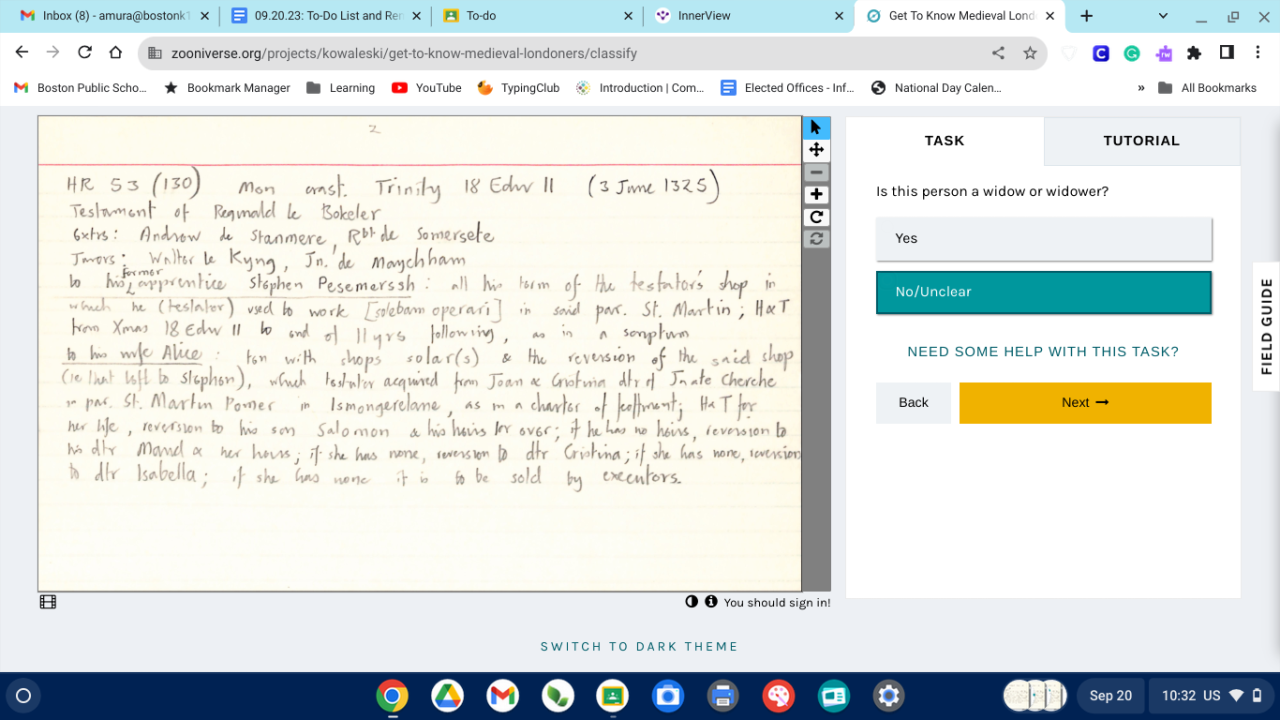 Inbox (8) - amura@bostonk1
09.20.23: To-Do List and Ren
To-do
InnerView
Get To Know Medieval Lond
zooniverse.org/projects/kowaleski/get-to-know-medieval-londoners/classify
Boston Public Scho...
Bookmark Manager
Learning
YouTube
TypingClub
Introduction | Com...
Elected Offices - Inf...
National Day Calen...
»
All Bookmarks
2
HR 53 (130) Mon Trinity 18 Edw II (3 June 1325)
Testament of Reginald le Bokeler
Extrs: Andrew de Stanmere, Rbt de Somersete
Juvors: Walter le Kyng, Jn. de Maychham
to his former apprentice Stephen Pesemerssh: all his term of the testator's shop in
which he (testator) used to work [solebam operari] in said par. St. Martin; H&T
from Xmas 18 Edw II to end of 11 yrs following, as in a scriptum
to his wife Alice: ten with shops solar(s) & the reversion of the said shop
(ie that left to Stephen), which testator acquired from Joan & Cristina dtr of Jn atte Cherche
in par. St. Martin Pomer in Ismongerelane, as in a charter of feoffment; H&T for
her life, reversion to his son Salomon & his heirs for ever; if he has no heirs, reversion to
his dtr Maud & her heirs; if she has none, reversion to dtr Cristina; if she has none, reversion
to dtr Isabella; if she has none it is to be sold by executors.
TASK
TUTORIAL
Is this person a widow or widower?
Yes
No/Unclear
NEED SOME HELP WITH THIS TASK?
Back
Next
FIELD GUIDE
You should sign in!
SWITCH TO DARK THEME
Sep 20
10:32 US